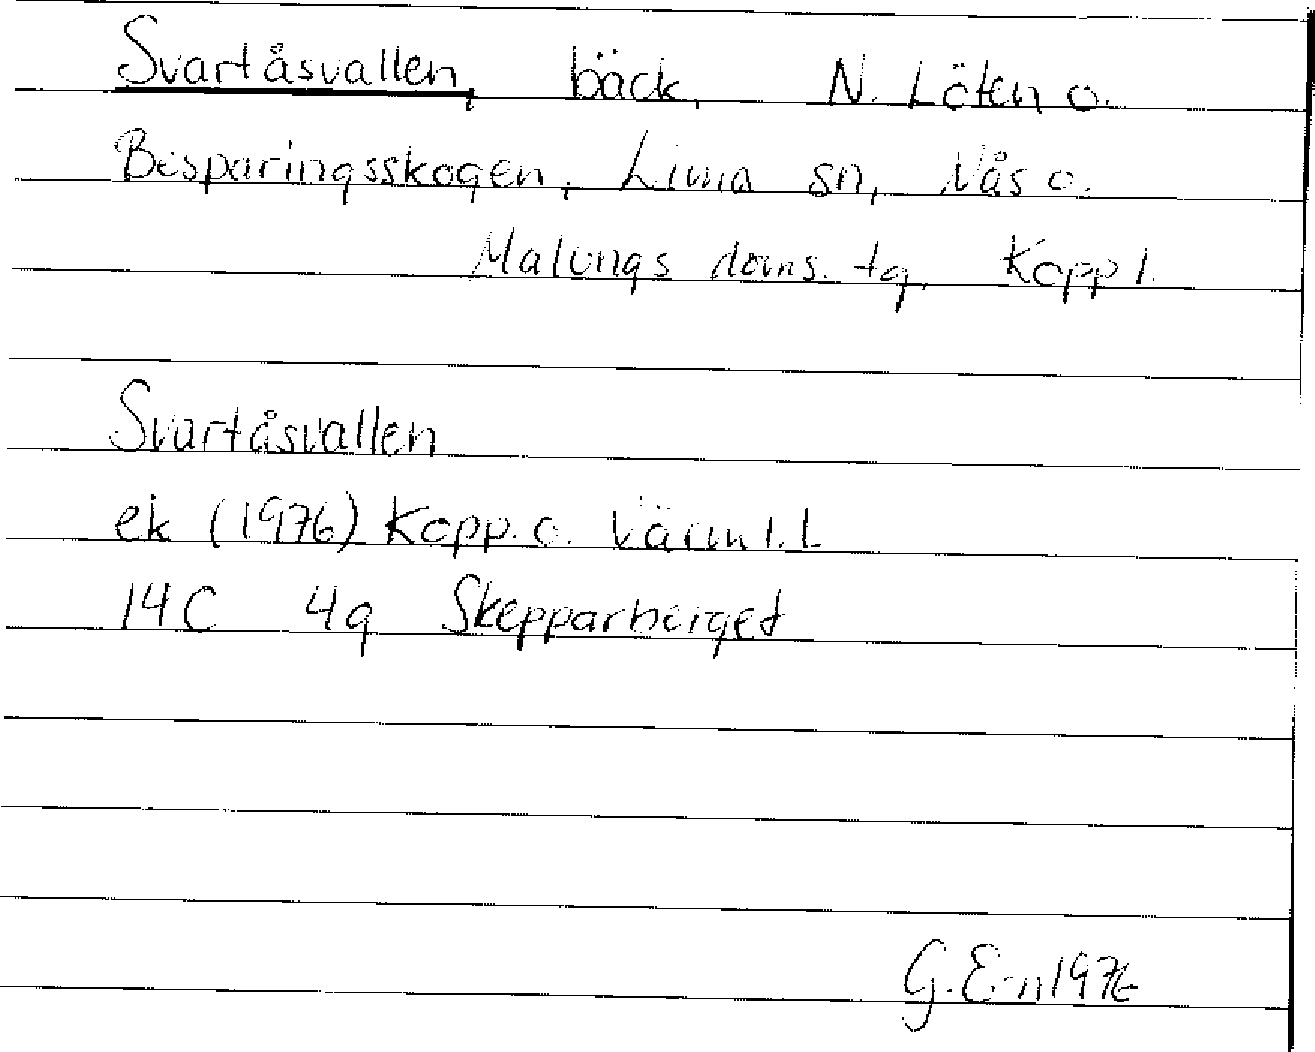 Svartåsvallen, bäck, N. Löten o.
Besparingsskogen, Lima sn, Nås o.
Malungs doms. tg, Kopp l.
Svartåsvallen
ek (1976) Kopp. o. Värml. L
14C 4g Skepparberget
G. E-n 1976